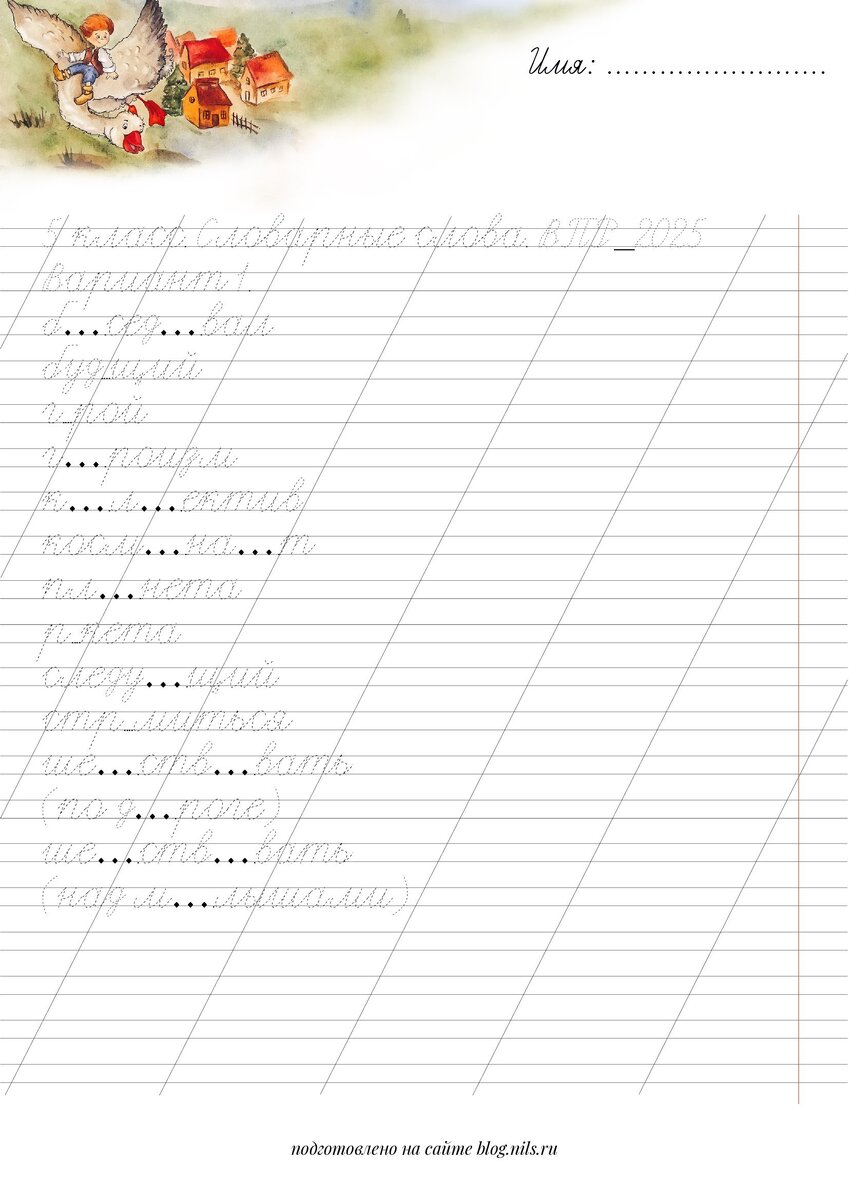 Имя: ........................
5 класс. Словарные слова. ВПР_2025
Вариант 1.
б...сед...вал
буд_щий
г_рой
г...роизм
к...л...ектив
косм...на...т
пл...нета
р_кета
следу...щий
стр_миться
ше...ств...вать
(по д...роге)
ше...ств...вать
(над м...лышами)
подготовлено на сайте blog.nils.ru